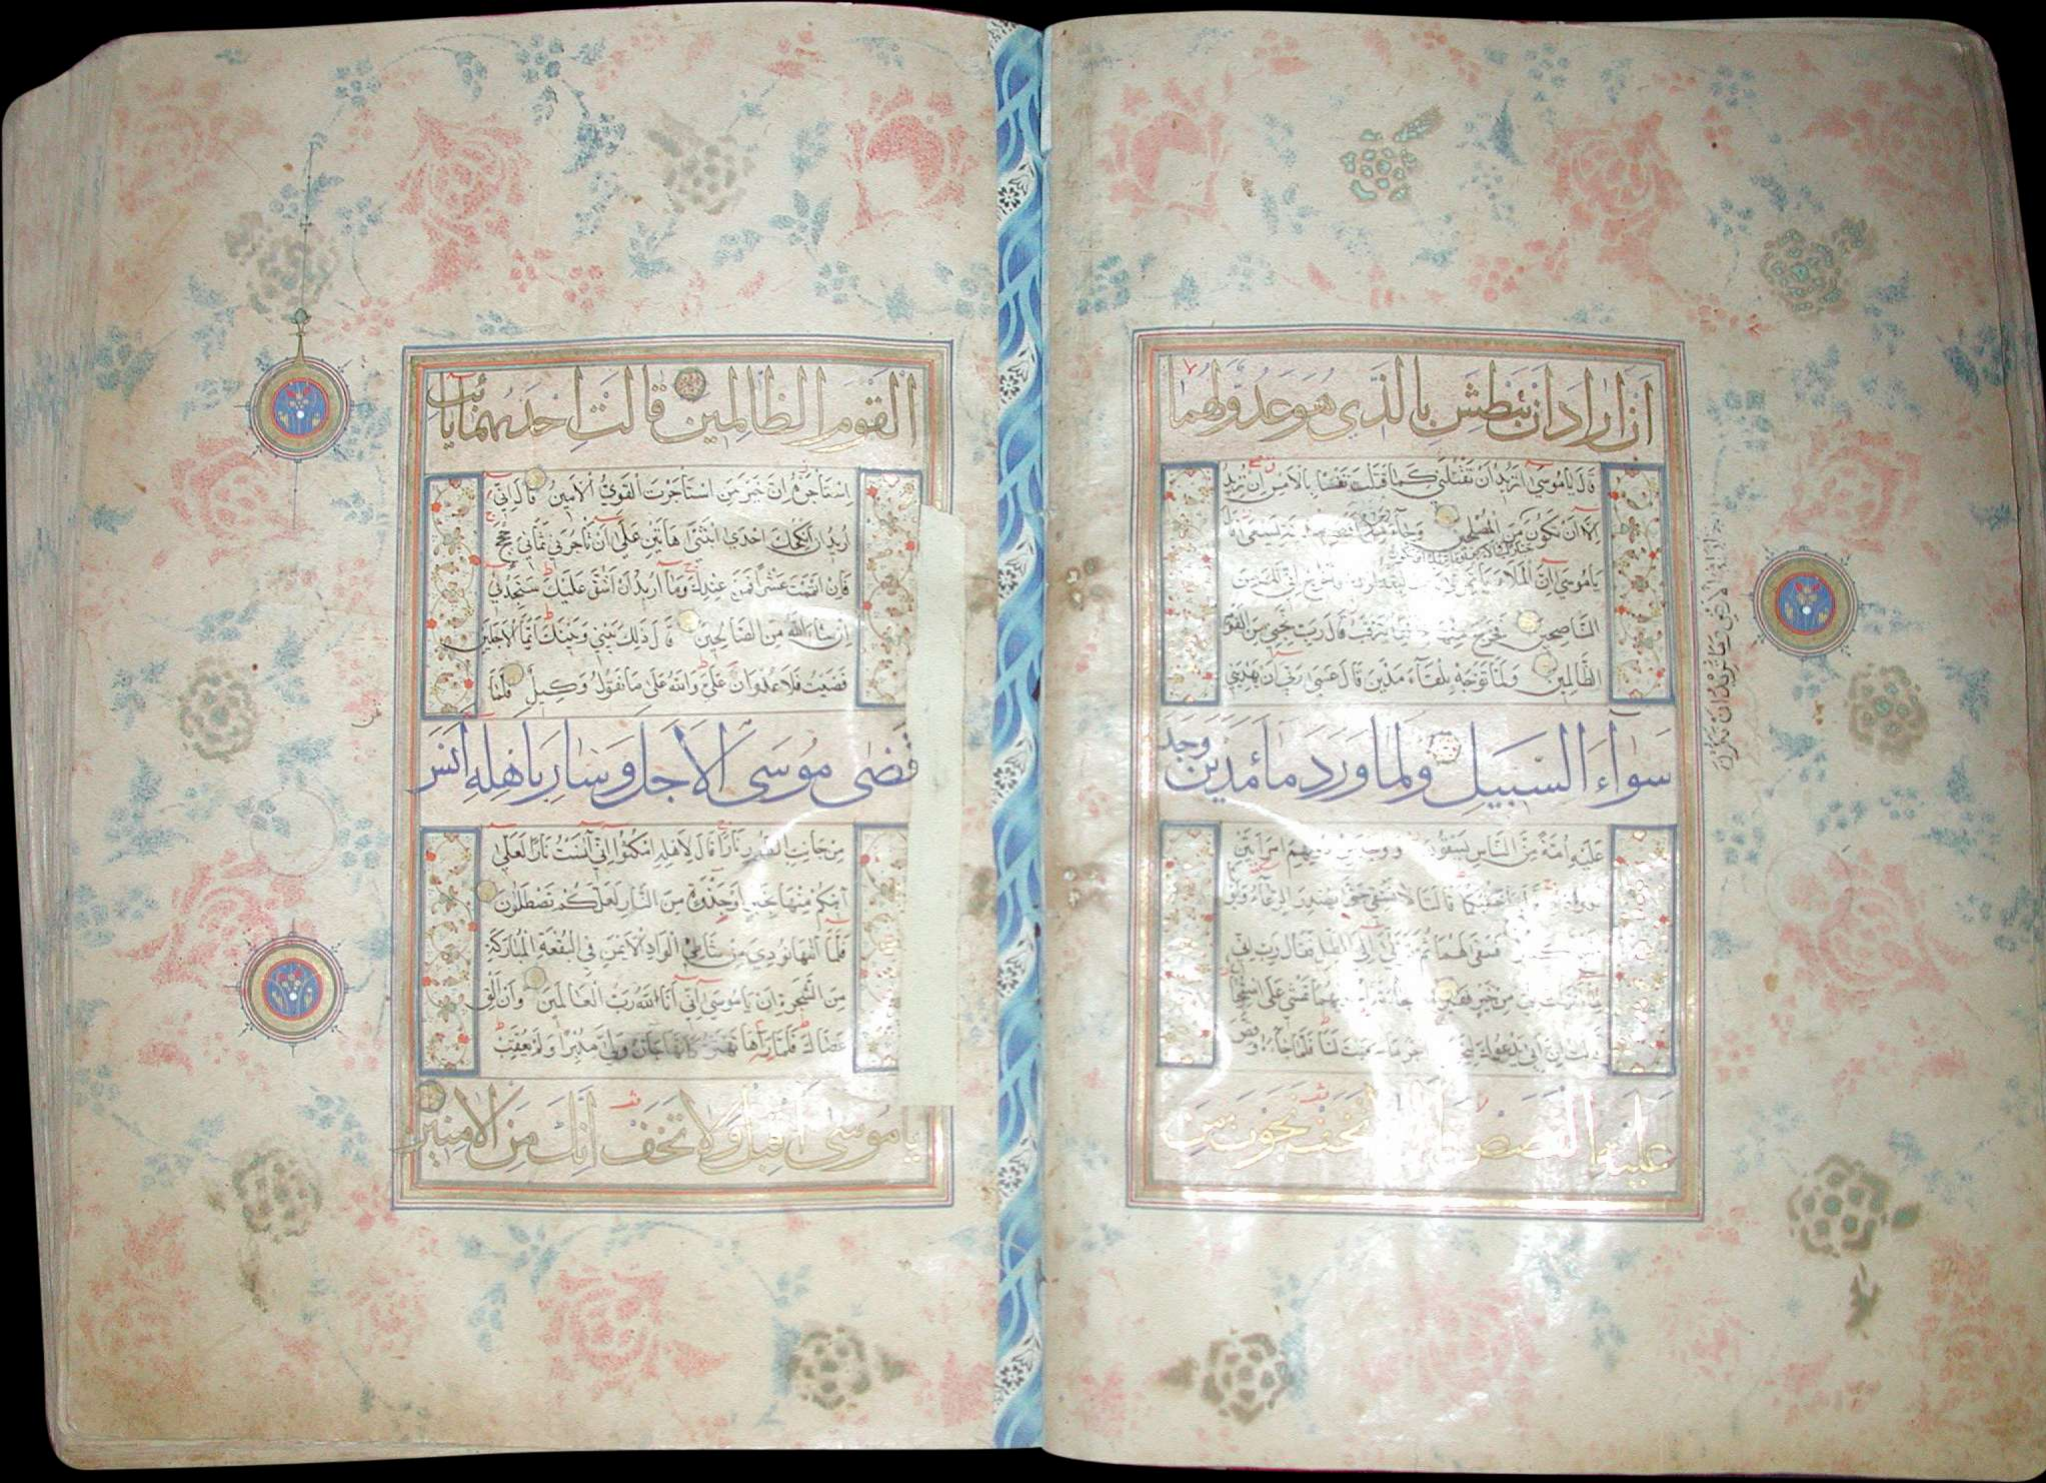 ان اراد ان يبطش بالذي هو عدو لهما
قال يا موسى اتريد ان تقتلني كما قتلت نفسا بالامس ان تريد
الا ان تكون من المصلحين وجاء رجل من اقصى المدينة يسعى قال
يا موسى ان الملاء ياتمرون بك ليقتلوك فاخرج اني لك من
الناصحين فخرج منها خائفا يترقب قال رب نجني من القوم
الظالمين ولما توجه تلقاء مدين قال عسى ربي ان يهديني
سواء السبيل ولما ورد ماء مدين وجد
عليه امة من الناس يسقون ووجد من دونهم امراتين
قالتا لا نسقي حتى يصدر الرعاء وابونا
فسقى لهما ثم تولى الى الظل فقال رب اني
من خير فقير تمشي على استحيا
قالت ان ابي يدعوك ليجزيك اجر ما سقيت لنا فلما جاءه وقص
عليه القصص قال لا تخف نجوت من
الا ان تكون جبارا في الارض وما تريد ان تكون
القوم الظالمين قالت احديهما يا ابت
استاجره ان خير من استاجرت القوي الامين قال اني
اريد ان انكحك احدى ابنتي هاتين على ان تاجرني ثماني حجج
فان اتممت عشرا فمن عندك وما اريد ان اشق عليك ستجدني
ان شاء الله من الصالحين قال ذلك بيني وبينك ايما الاجلين
قضيت فلا عدوان علي والله على ما نقول وكيل فلما
قضى موسى الاجل وسار باهله انس
من جانب الطور نارا قال لاهله امكثوا اني آنست نارا لعلي
آتيكم منها بخبر او جذوة من النار لعلكم تصطلون
فلما اتيها نودي من شاطئ الواد الايمن في البقعة المباركة
من الشجرة ان يا موسى اني انا الله رب العالمين وان الق
عصاك فلما رآها تهتز كانها جان ولى مدبرا ولم يعقب
يا موسى اقبل ولا تخف انك من الامنين